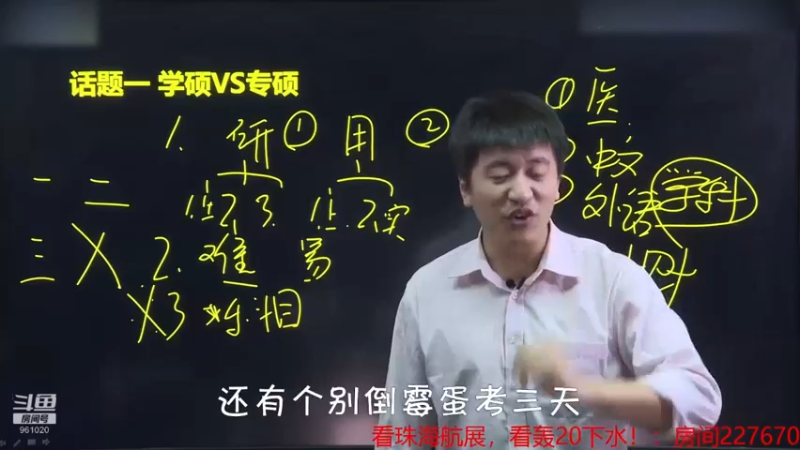 话题一 学硕VS专硕
1. 研① 用②
①医
一 二
1. 2. 3. 1. 2.实
外语 学科
三 2. 难 易
3
还有个别倒霉蛋考三天
斗鱼
房间号
961020
看珠海航展，看轰20下水！：房间227670